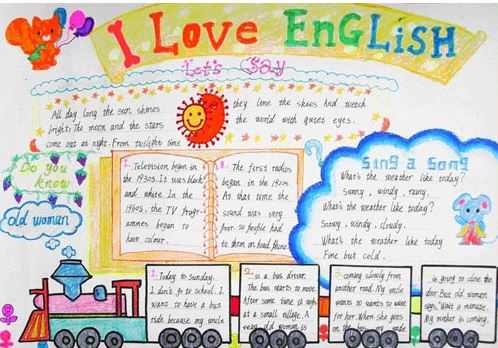 I Love EnGLisH
Let's Say
All day long the sun shines
bright. The moon and the stars
come out at night. From twilight time
they line the skies and watch
the world with quiet eyes.
Do you
know
old woman
1. Television began in
the 1930s. It was black
and white. In the
1960s, the TV Progr-
ammes began to
have colour.
The first radios
began in the 1920s.
At that time the
sound was very
poor. So people had
to them on head phone
Sing a Song
What's the weather like today?
Sunny, windy, rainy.
What's the weather like today?
Sunny, windy, cloudy.
What's the weather like today
Fine but cold.
1. Today to Sunday.
I don't go to school. I
want to have a bus
ride because my uncle
2. is a bus driver.
The bus starts to move.
After some time, it stops
at a small village. A
old woman is
coming slowly from
another road. My uncle
wants to wants to wait
for her. When she goes
on the bus, my uncle
is going to close the
door. But old woman
says, "Wait a minute.
My mother is coming.